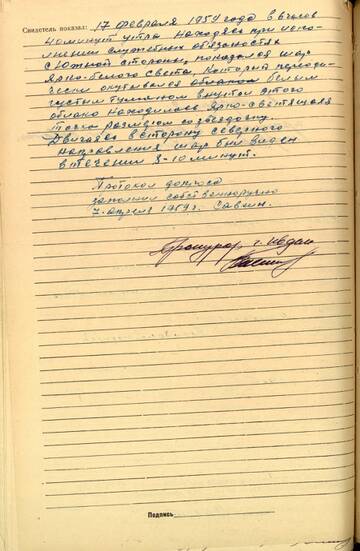 Свидетель показал: 17 февраля 1959 года в 6 часов
40 минут утра находясь при испо-
лнении служебных обязаностях
с южной стороны, показался шар
ярко-белого света, который периоди-
чески окутывался облаком белым
густым туманом внутри этого
облака находилась ярко-светящаяся
точка размером со звездочку.
Двигаясь в сторону северного
направления шар был виден
в течении 8-10 минут.
Протокол допроса
заполнил собственноручно
7 апреля 1959 г. Савкин.
Прокурор г. Ивдель
Подпись